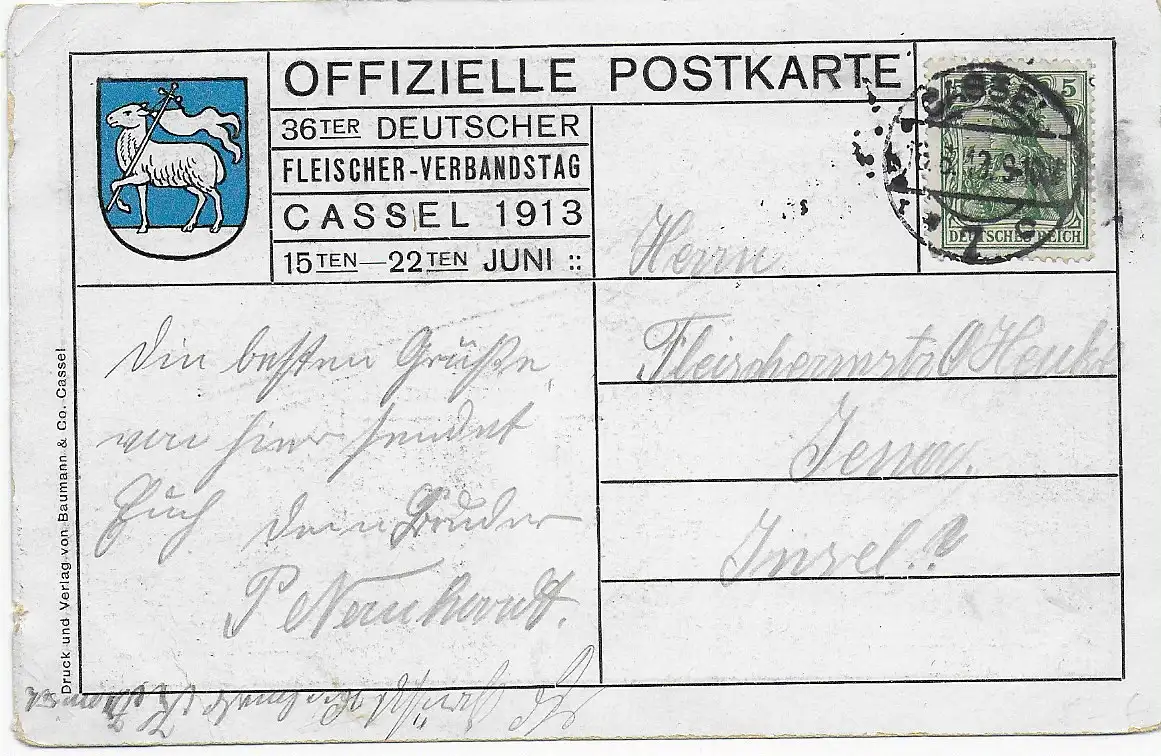 OFFIZIELLE POSTKARTE
36TER DEUTSCHER
FLEISCHER-VERBANDSTAG
CASSEL 1913
15TEN — 22TEN JUNI ::
5 5
CASSEL
13.9-10V
DEUTSCHES REICH
Herrn
Fleischermstr O Henke
Jena.
Insel
Die besten Grüße
von hier sendet
Euch dein Bruder
P Nernhardt.
Druck und Verlag von Baumann & Co. Cassel